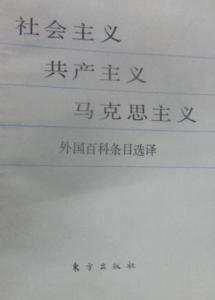 社会主义
共产主义
马克思主义
外国百科条目选译
东方出版社